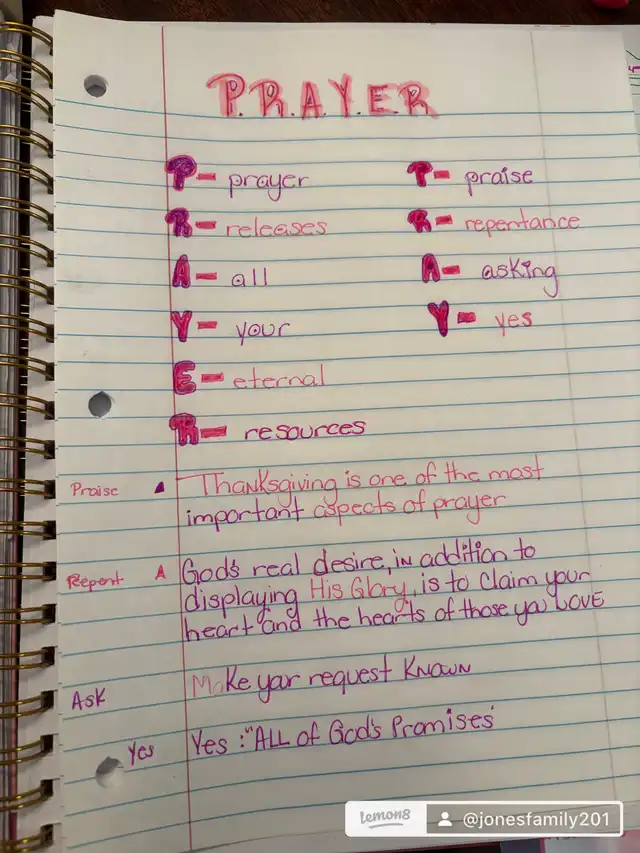 P.R.A.Y.E.R
P- prayer
R- releases
A- all
Y- your
E- eternal
R- resources
P- praise
R- repentance
A- asking
Y- yes
Praise Thanksgiving is one of the most
important aspects of prayer
Repent God's real desire, in addition to
displaying His Glory, is to claim your
heart and the hearts of those you LOVE
Ask Make your request KNOWN
Yes Yes : "ALL of God's Promises"
lemon8 @jonesfamily201